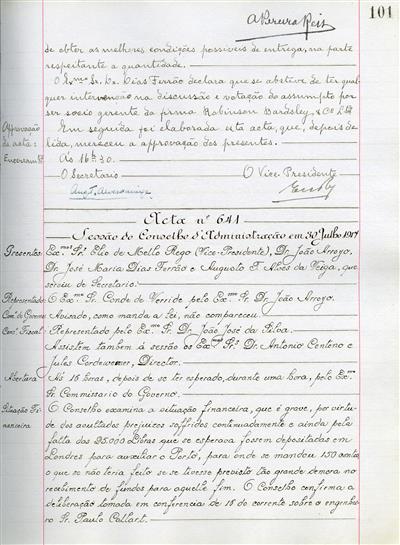 A Pereira Reis
101
de obter as melhores condições possiveis de entrega, na parte
respeitante a quantidade.
O Exmo. Sr. Dr. Dias Ferrão declara que se absteve de ter qual-
quer intervenção na discussão e votação do assumpto por
ser socio gerente da firma Robinson Bardsley, & Co Ltd
Approvação
Em seguida foi elaborada esta acta, que, depois de
de acta:
lida, mereceu a approvação dos presentes.
Encerramto
Ás 16h.30.
O Secretario
O Vice Presidente
Acta nº 641
Sessão do Conselho d'Administração em 30 Julho 1917
Presentes:
Exmos Srs. Elio de Mello Rego (Vice-Presidente), Dr João Arroyo,
Dr. José Maria Dias Ferrão e Augusto F. Alves da Veiga, que
serviu de Secretario.
Representado
O Exmo Sr. Conde de Verride pelo Exmo Sr Dr. João Arroyo.
Com. do Governo
Avisado, como manda a Lei, não compareceu.
Cons. Fiscal.
Representado pelo Exmo Sr. Dr João José da Silva.
Assistem também á sessão os Exmos Srs. Dr. Antonio Centeno e
Jules Cordeweener, Director.
Abertura
Ás 15 horas, depois de se ter esperado, durante uma hora, pelo Exmo
Sr. Commissario do Governo.
Situação Fi-
O Conselho examina a situação financeira, que é grave, por virtu-
nanceira
de dos avultados prejuizos soffridos continuadamente e ainda pela
falta das 25.000 Libras que se esperava fossem depositadas em
Londres para auxiliar o Porto, para onde se mandou 150 contos
o que se não teria feito se se tivesse previsto tão grande demora no
recebimento de fundos para aquelle fim. O Conselho confirma a
deliberação tomada em conferencia de 18 do corrente sobre o engenhei-
ro Sr. Paulo Callart.